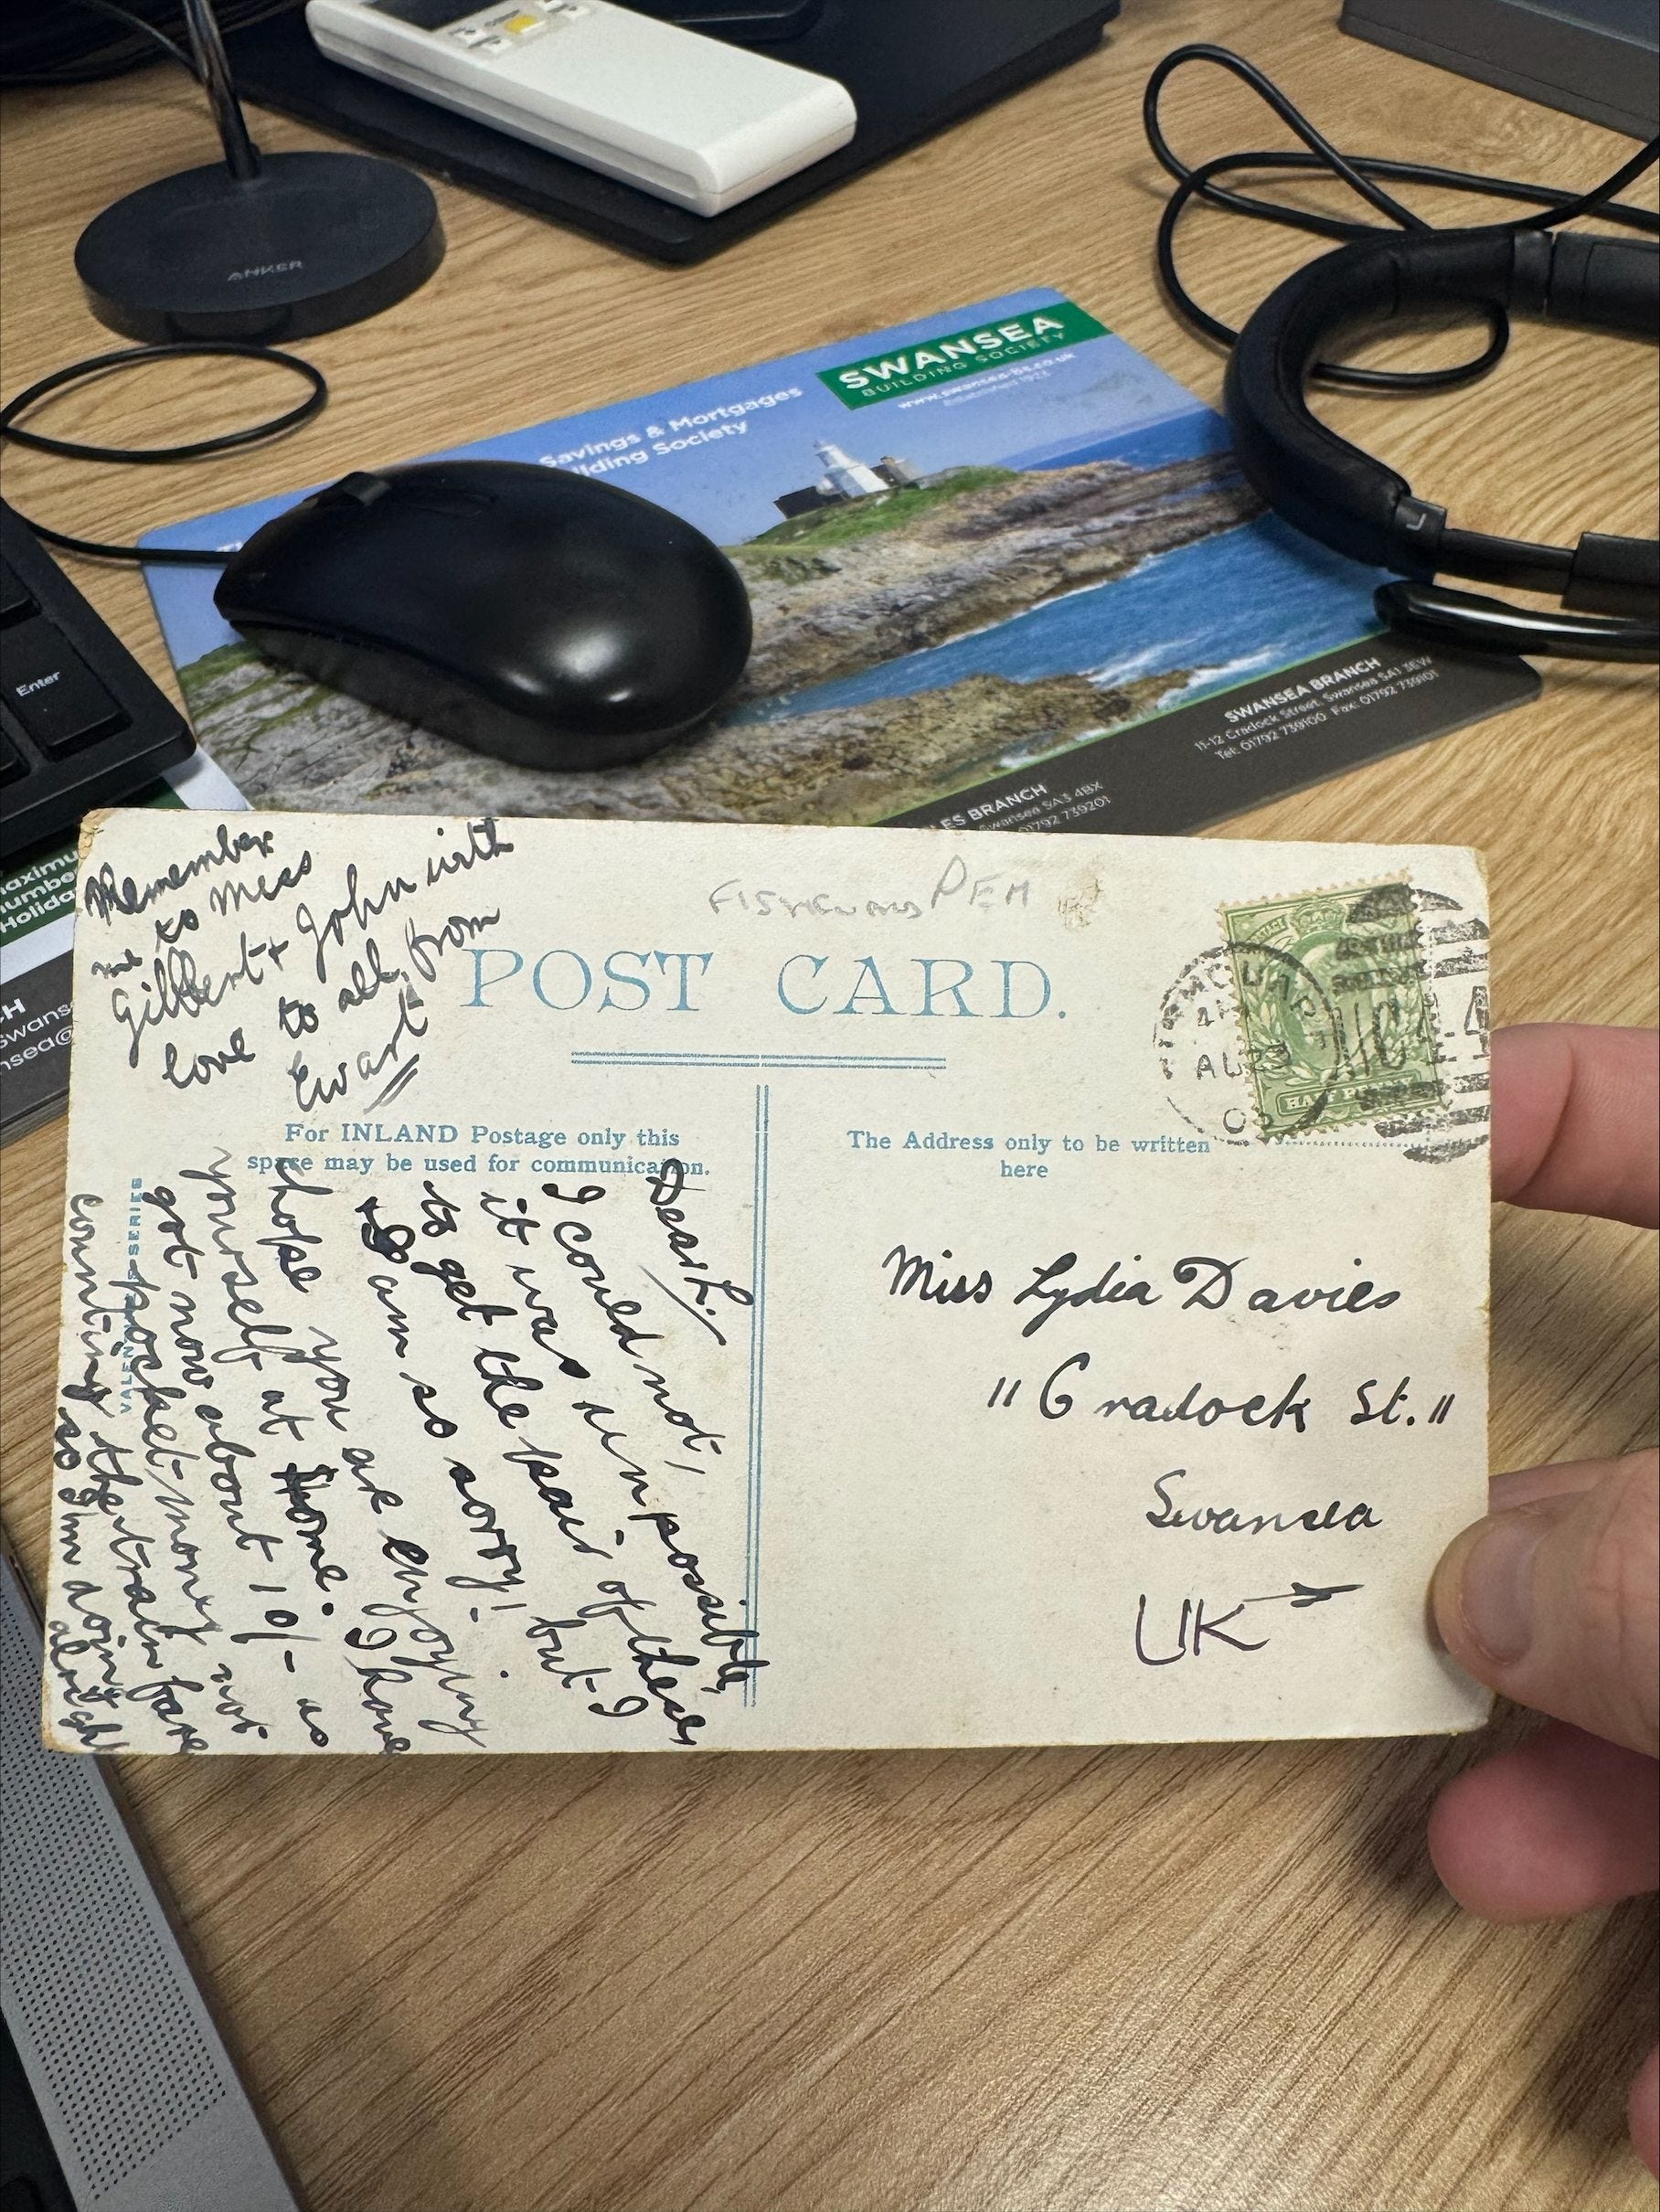 ANKER
Enter
SWANSEA
BUILDING SOCIETY
www.swansea-bs.co.uk
Established 1923
Savings & Mortgages
Building Society
SWANSEA BRANCH
11-12 Cradock Street, Swansea SA1 3EW
Tel: 01792 739100 Fax: 01792 739101
LES BRANCH
Swansea SA3 4BX
01792 739201
L
Remember
me to Miss
Gilbert + John with
love to all, from
Ewart
PEM
POST CARD.
For INLAND Postage only this
space may be used for communication.
The Address only to be written
here
HALF PENNY
AU 23
Dear L.
I could not,
it was impossible,
to get the pair of these
but I
am so sorry!
hope you are enjoying
yourself at Home. I have
got now about 10/- as
pocket money not
counting the train fare
so I'm doing
alright
VALENTINE'S SERIES
Miss Lydia Davies
"Cradock St."
Swansea
UK